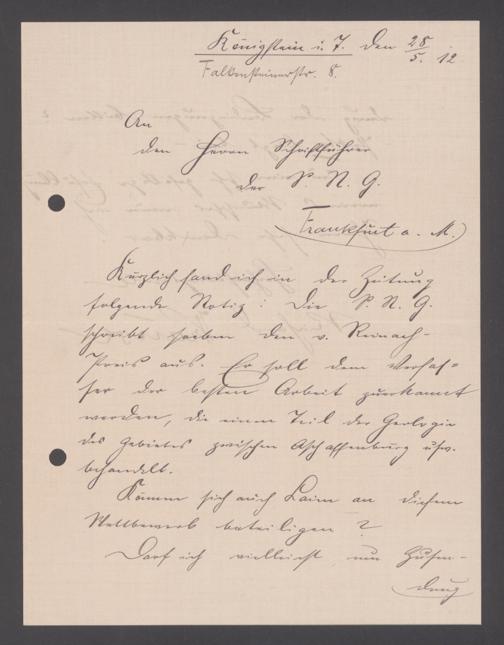 Königstein i. T. den 28/5. 12
Falkensteinerstr. 8.
An
den Herrn Schriftführer
der S. N. G.
Frankfurt a. M.
Kürzlich fand ich in der Zeitung
folgende Notiz: Die S. N. G.
schreibt soeben den v. Reinach-
Preis aus. Er soll dem Verfas-
ser der besten Arbeit zuerkannt
werden, die einen Teil der Geologie
des Gebietes zwischen Aschaffenburg usw.
behandelt.
Können sich auch Laien an diesem
Wettbewerb beteiligen?
Darf ich vielleicht um Zusen-
dung